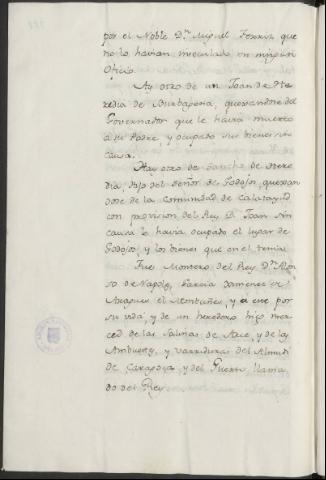 por el Noble D.ⁿ Miguel Ferriz, que
no lo havian inviculado en ningun
Oficio.
Ay otro de un Joan de He-
redia de Burbaguena, quexandose del
Governador que le havia muerto
a su Padre, y ocupado sus bienes sin
causa.
Hay otro de Sancho de Here-
dia, hijo del Señor de Godojos, quexan
dose de la Comunidad de Calatayud
con provision del Rey D. Joan sin
causa le havia ocupado el lugar de
Godojos, y los bienes que en el tenia.
Fue Montero del Rey D.ⁿ Alon
so de Napoles, Garcia Ximenez de
Aragues el Montañes, y a este por
su vida y de un heredero hizo mer-
ced de las Salinas de Nace, y de las
y varreduras del Almudi
de Çaragoça, y del Puerto llama
do del Rey.